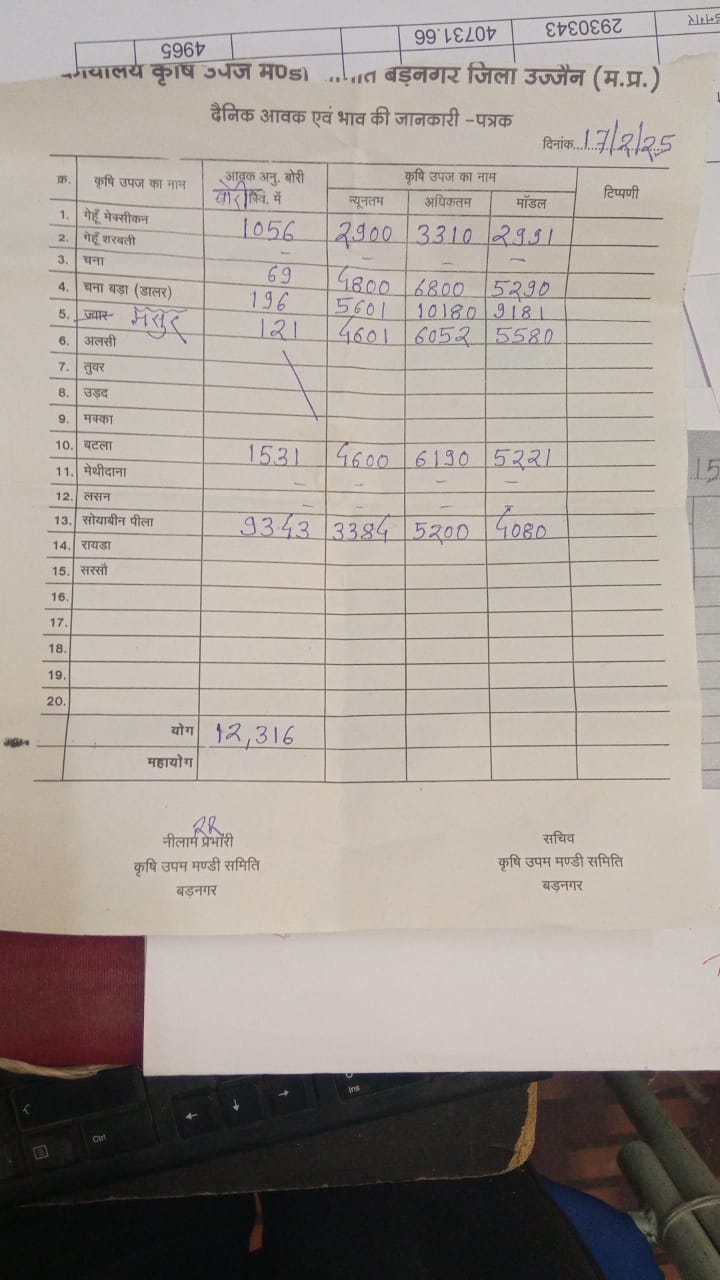 4965 40731.66 2930343
कृषि उपज बड़नगर जिला उज्जैन (म.प्र.)
दैनिक आवक एवं भाव की जानकारी -पत्रक
दिनांक...17/2/25
क्र. कृषि उपज का नाम आवक अनु. बोरी कृषि उपज का नाम टिप्पणी
बोरी क्विं. में न्यूनतम अधिकतम मॉडल
1. गेहूँ मेक्सीकन 1056 2900 3310 2991
2. गेहूँ शरबती - - - -
3. चना 69 4800 6800 5290
4. चना बड़ा (डालर) 196 5601 10180 9181
5. ज्वार मसुर 121 4601 6052 5580
6. अलसी
7. तुवर
8. उड़द
9. मक्का
10. बटला 1531 4600 6190 5221
11. मेथीदाना - - - -
12. लसन - - -
13. सोयाबीन पीला 9343 3384 5200 4080
14. रायडा
15. सरसौ
16.
17.
18.
19.
20.
योग 12,316
महायोग
नीलाम प्रभारी सचिव
कृषि उपम मण्डी समिति कृषि उपम मण्डी समिति
बड़नगर बड़नगर
15
Ins
Ctrl